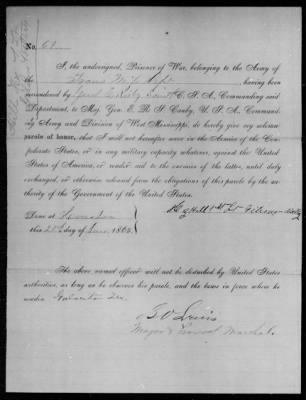 No. 61
I, the undersigned, Prisoner of War, belonging to the Army of
the Trans Miss Dept, having been
surrendered by Genl E. Kirby Smith C. S. A., Commanding said
Department, to Maj. Gen. E. R. S. Canby, U. S. A., Command-
ing Army and Division of West Mississippi, do hereby give my solemn
parole of honor, that I will not hereafter serve in the Armies of the Con-
federate States, or in any military capacity whatever, against the United
States of America, or render aid to the enemies of the latter, until duly
exchanged, or otherwise released from the obligations of this parole by the
authority of the Government of the United States.
Done at
this day of 1865.
The above named officer will not be disturbed by United States
authorities, as long as he observes his parole, and the laws in force where he
resides Galveston Tex
Major & Provost Marshal.